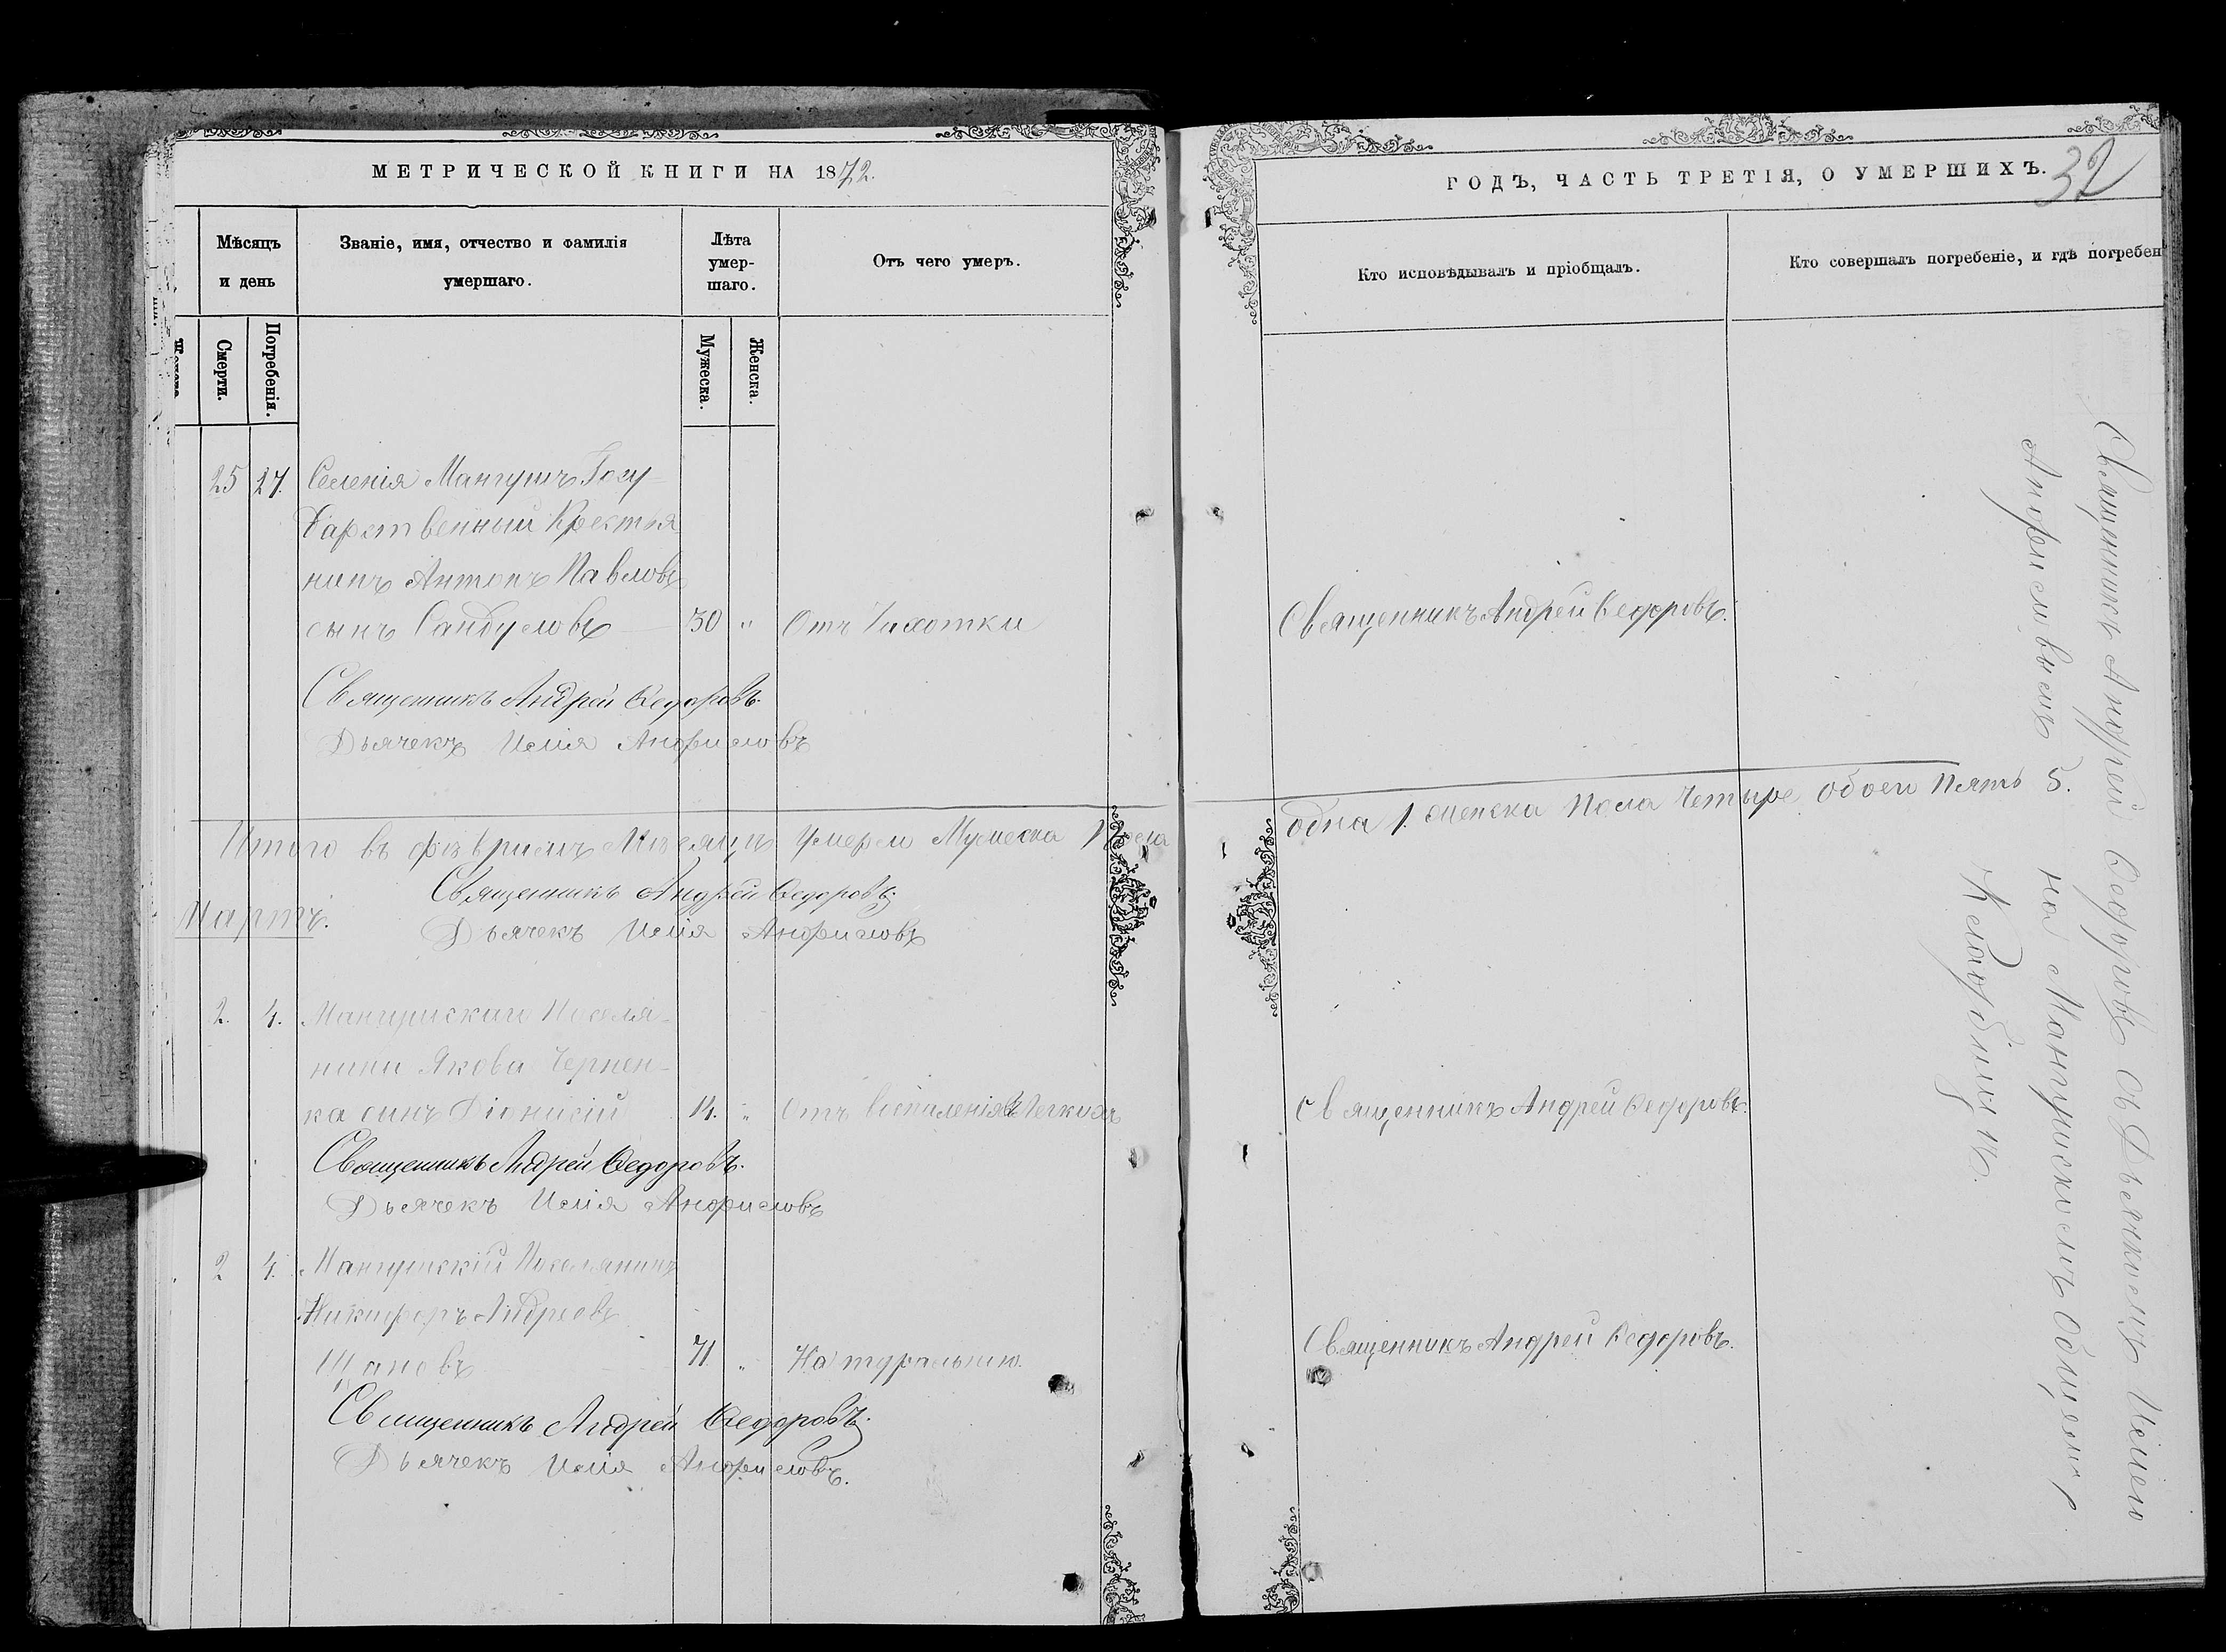 МЕТРИЧЕСКОЙ КНИГИ НА 1872.
Мѣсяцъ и день
Званіе, имя, отчество и фамилія умершаго.
Лѣта умер-шаго.
Отъ чего умеръ.
Смерти.
Погребенія.
Мужеска.
Женска.
25 27. Селенія Мангушъ Госу-
дарственный Крестья
нинъ Антонъ Павловъ
сынъ Сандуловъ — 30 „ Отъ Чахотки
Священникъ Андрей Ѳедоровъ.
Дьячекъ Илія Анфиловъ
Итого въ февралѣ Мѣсяцѣ умерло Мужеска Пола
Священникъ Андрей Ѳедоровъ
Мартъ.
Дьячекъ Илія Анфиловъ
2. 4. Мангушскаги Поселя-
нина Якова Чернен-
ка синъ Діонисій 14. „ Отъ Воспаленія Легкихъ
Священникъ Андрей Ѳедоровъ.
Дьячекъ Илія Анфиловъ
2 4. Мангушскій Поселянинъ
Никифоръ Андреевъ
71 „ Натуральню.
Священникъ Андрей Ѳедоровъ.
Дьячекъ Илія Анфиловъ.
ГОДЪ, ЧАСТЬ ТРЕТІЯ, О УМЕРШИХЪ.
32
Кто исповѣдывалъ и пріобщалъ.
Кто совершалъ погребеніе, и гдѣ погребен
Священникъ Андрей Ѳедоровъ.
одна 1. женска Пола Четыре обоего Пять 5.
Священникъ Андрей Ѳедоровъ.
Священникъ Андрей Ѳедоровъ.
Священникъ Андрей Ѳедоровъ Съ Дьячкомъ Иліею
Анфиловымъ на Мангушскомъ Общем,
Кладбищѣ